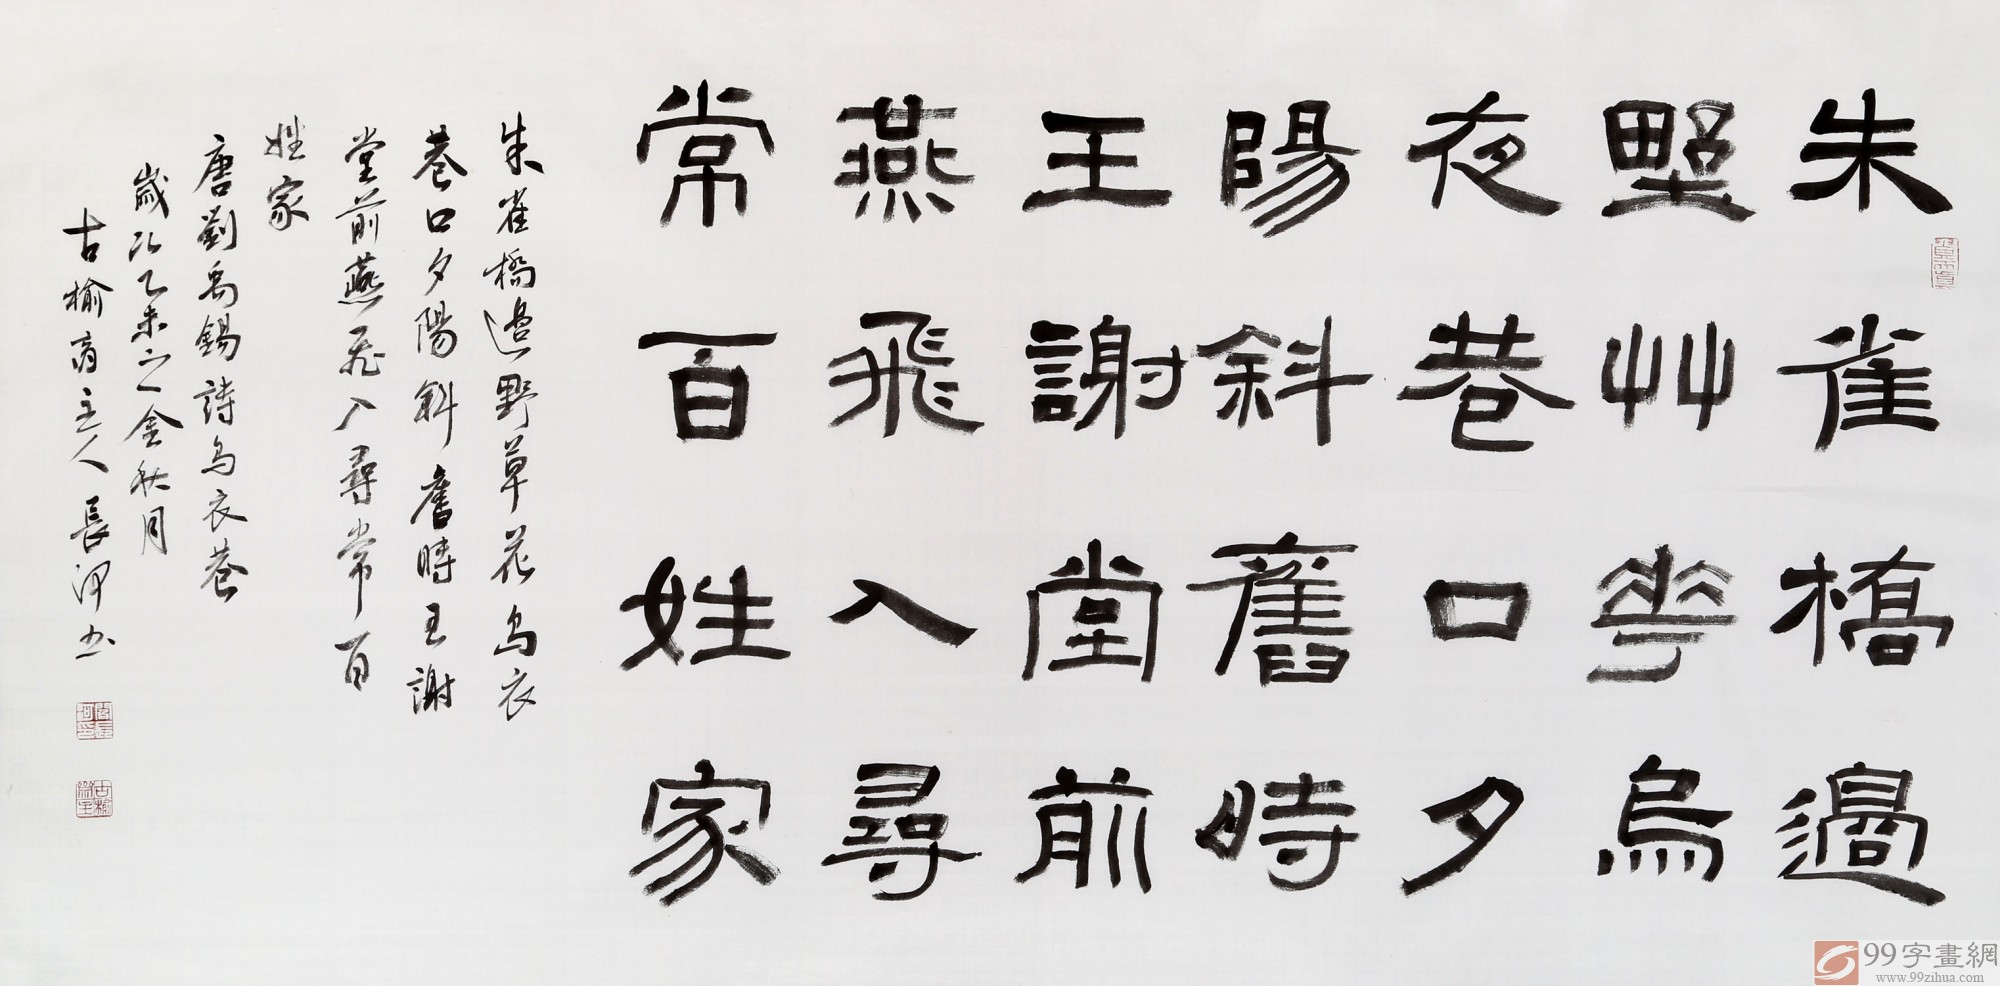 朱雀橋邊
野艸華烏
夜巷口夕
陽斜舊時
王謝堂前
燕飛入尋
常百姓家
朱雀橋邊野草花烏衣
巷口夕陽斜舊時王謝
堂前燕飛入尋常百
姓家
唐劉禹錫詩烏衣巷
歲次乙未之金秋月
古榆齋主人長河书
99字畫網
www.99zihua.com